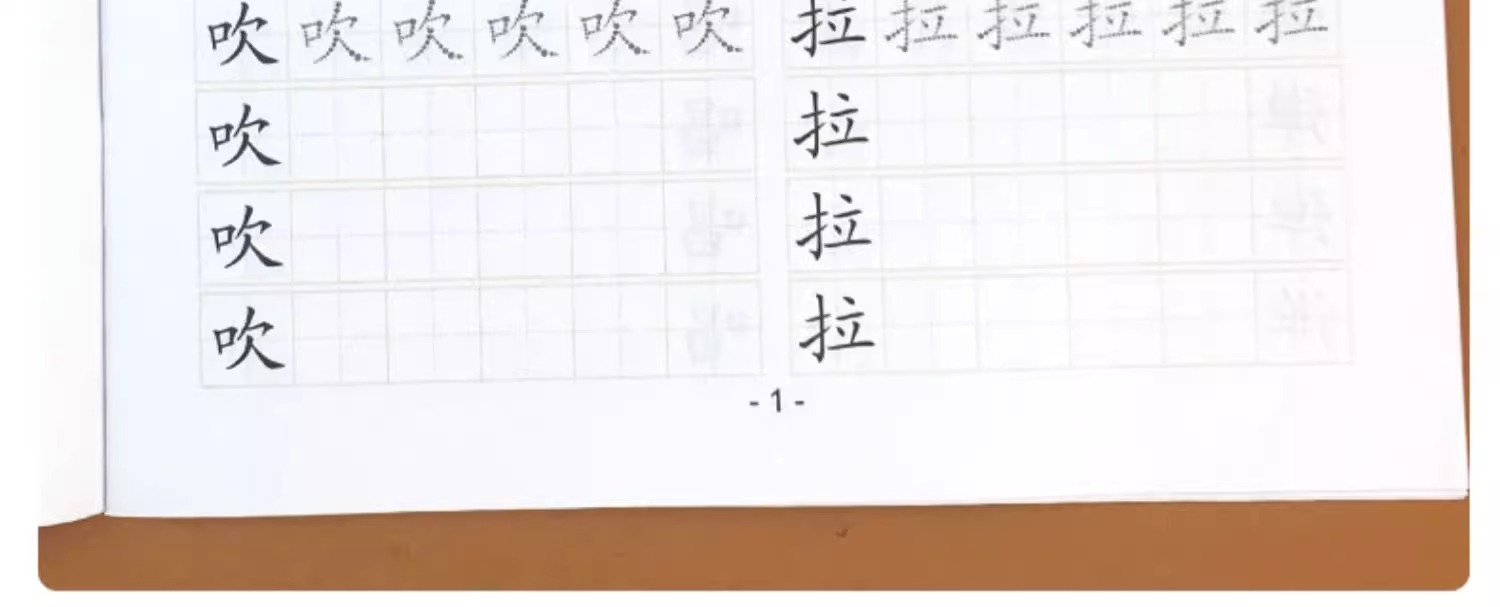 吹 吹 吹 吹 吹 吹 拉 拉 拉 拉 拉 拉
吹 拉
吹 拉
吹 拉
- 1 -